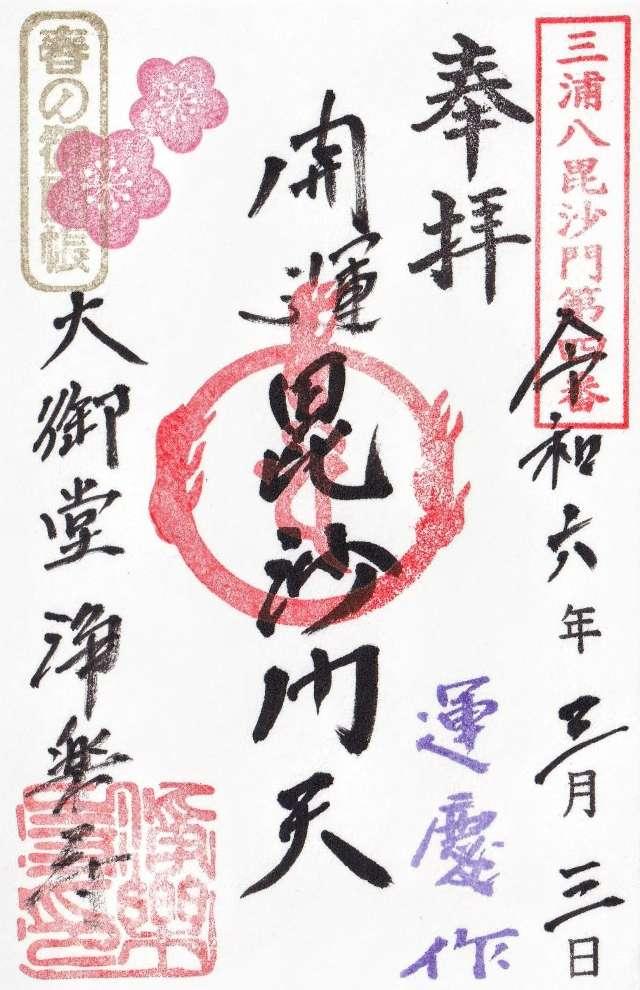 三浦八毘沙門第四番
令和六年三月三日
奉拝
運慶作
開運毘沙門天
春の御開帳
大御堂 浄楽寺